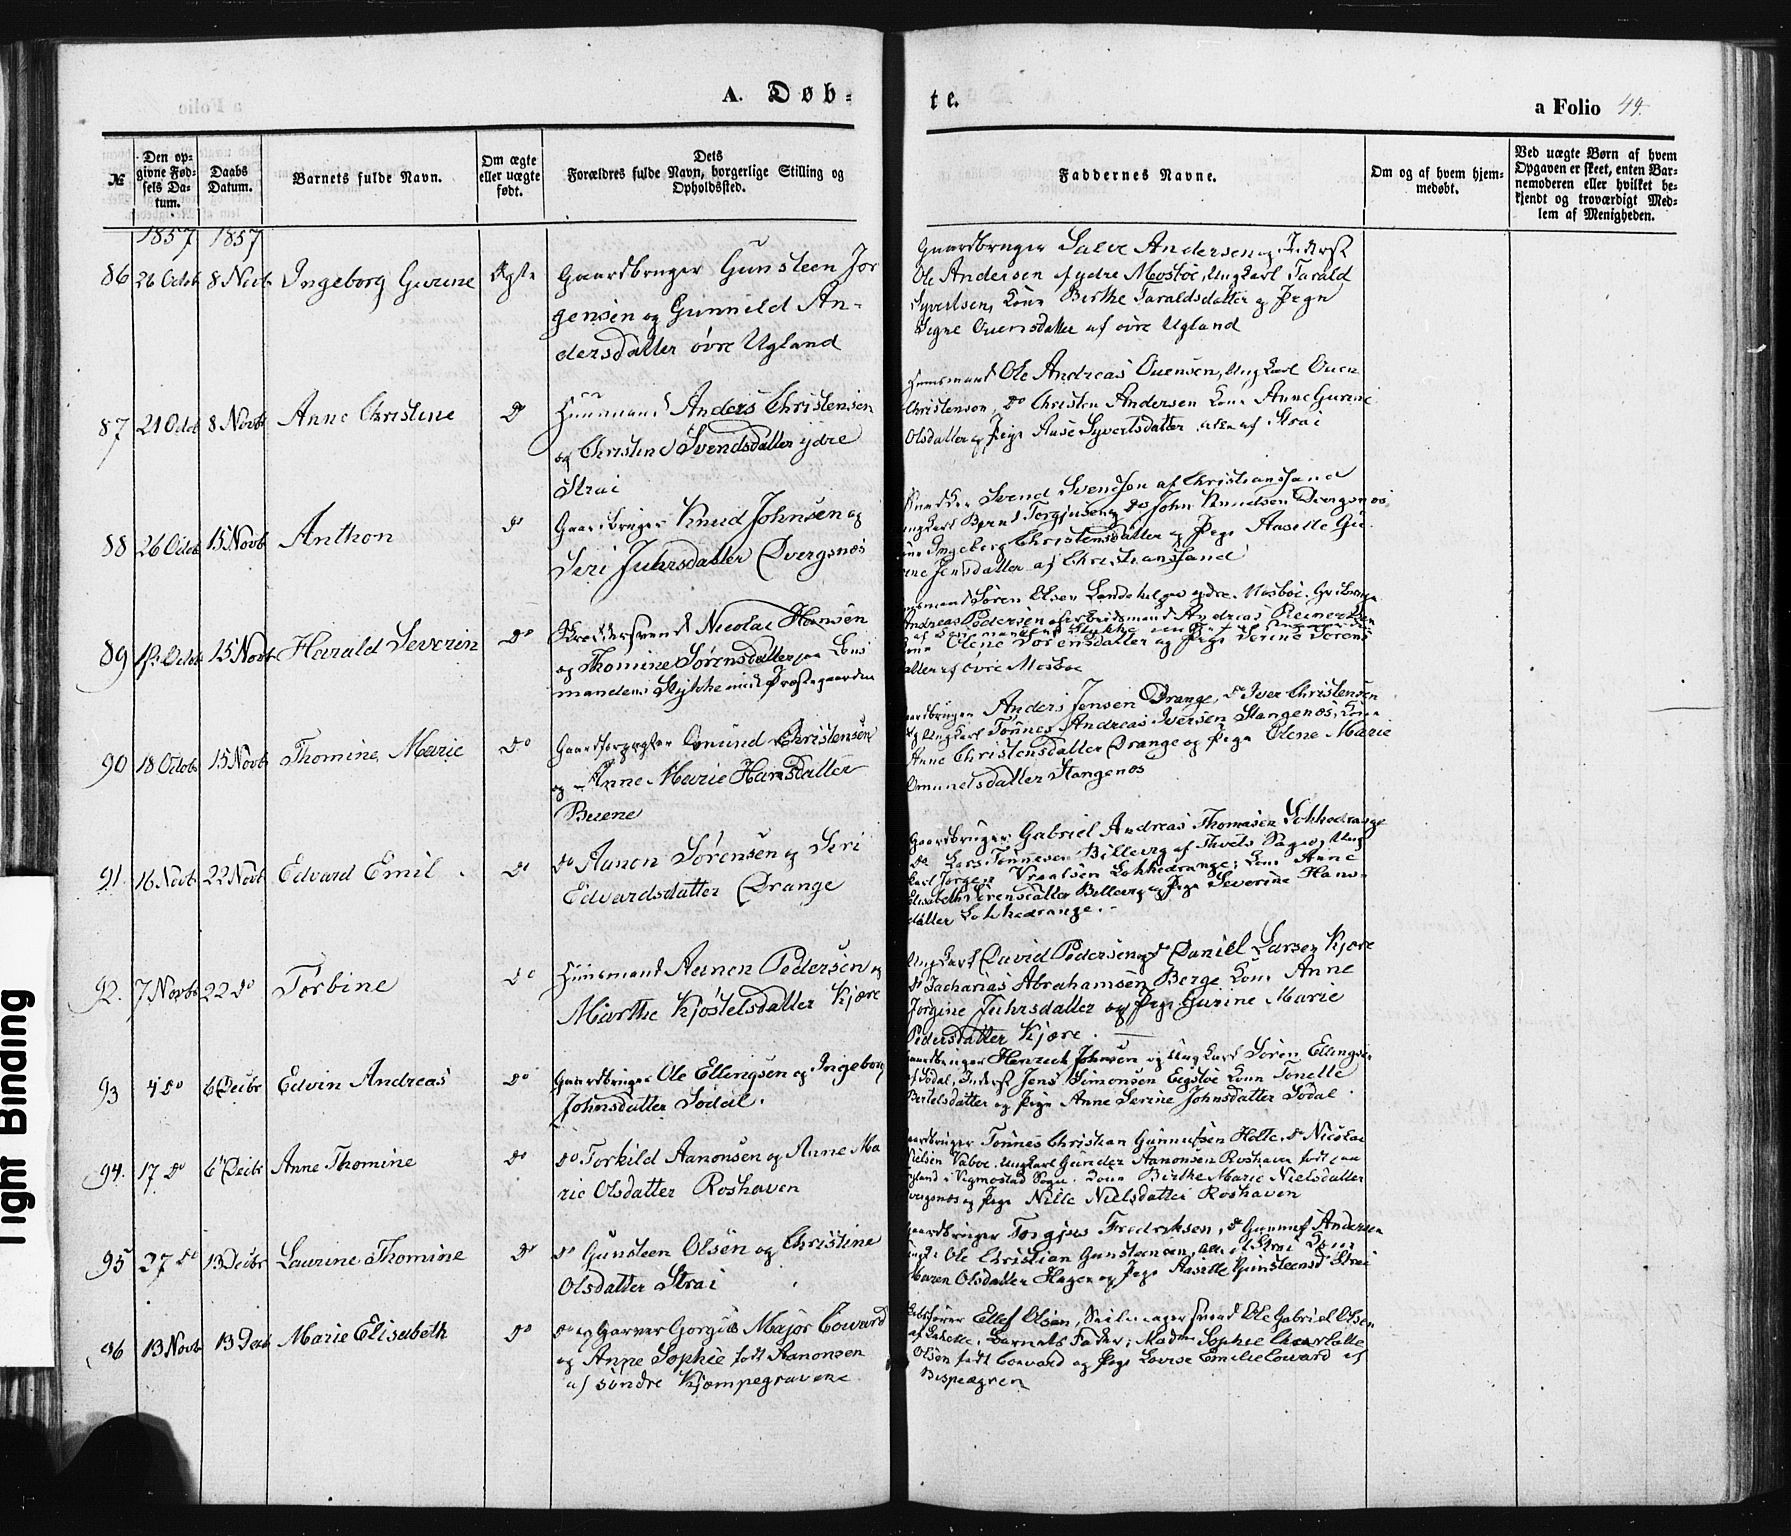 A. Døb-
te.
a Folio 44.
№
Den op-
givne Fød-
sels Da-
tum.
Daabs
Datum.
Barnets fulde Navn.
Om ægte
eller uægte
født.
Dets
Forældres fulde Navn, borgerlige Stilling og
Opholdssted.
Faddernes Navne.
Om og af hvem hjem-
medøbt.
Ved uægte Børn af hvem
Opgaven er skeet, enten Bar-
nemoderen eller hvilket be-
kjendt og troværdigt Med-
lem af Menigheden.
1857 1857
86 26 Octb 8 Novb Ingeborg Gurine Ægte
Gaardbruger Gunsteen Jør
gensen og Gunnild An-
dersdatter øvre Ugland
Gaardbruger Salve Andersen og Inderst
Ole Andersen af ydre Mosbøe, Ungkarl Tarald
Syvertsen, Kone Birthe Taraldsdatter og Pige
Signe Ouensdatter af øvre Ugland
87 21 Octb 8 Novb Anne Christine Do
Huusmand Anders Christensen
og Christine Svendsdatter ydre
Strai
Huusmand Ole Andreas Ouensen, Ungkarl Ouen
Christensen, Do Christen Andersen Kone Anne Gurine
Olsdatter og Pige Aase Syvertsdatter, alle af Strai
88 26 Octb 15 Novb Anthon Do
Gaardbruger Knud Johnsen og
Seri Juhrsdatter Dvergsnes
Svend Svendsen af Christianssand
Ungkarl Bernt Torgjusen og Do John Knudsen Dvergsnes
Kone Ingeborg Christensdatter og Pige Aaselle Gu-
rine Jensdatter af Christianssand
89 15 Novb Harald Severin Do
Nicolai Hansen
og Thomine Sørensdatter paa Lens
mandens Stykke under Præstegaarden
Huusmand Søren Olsen Landehelgen ydre Mosbøe, Grdbruger
Andreas Pedersen Arbeidsmand Andreas Reinertsen
af Lensmandens Stykke under Præstegaarden
Kone Olene Sørensdatter og Pige Serine Sørens
datter af øvre Mosbøe
90 18 Octb 15 Novb Thomine Marie Do
Gaardforpagter Omund Christensen
og Anne Marie Hansdatter
Buene
Gaardbruger Anders Jensen Drange, Do Iver Christensen
og Ungkarl Tønnes Andreas Iversen Stangenes, Kone
Anne Christensdatter Drange og Pige Olene Marie
Omundsdatter Stangenes
91 16 Novb 22 Novb Edvard Emil Do
Do Aanon Sørensen og Seri
Edvardsdatter Drange
Gaardbruger Gabriel Andreas Thomasen Lohkedrange
Do Lars Tønnesen Billevig af Tveits Sogn, Ung
karl Jørgen Lohkedrange, Kone Anne
Elisabeth Sørensdatter Billevig og Pige Severine Hans-
datter Lohkedrange.
92. 7 Novb 22 Do Torbine Do
Huusmand Aanon Pedersen og
Marthe Kjøstelsdatter Kjøre
Ungkarl David Pedersen og Do Daniel Larsen Kjøre
Do Zacharias Abrahamsen Berge Kone Anne
Jørgine Juhrsdatter og Pige Gurine Marie
Pedersdatter Kjøre.
93 4 Do 6 Decbr Edvin Andreas Do
Gaardbruger Ole Ellingsen og Ingeborg
Johnsdatter Sødal.
Gaardbruger Henrich Johnsen og Ungkarl Søren Ellingsen
af Sødal, Inderst Jens Simonsen Eegsbøe Kone Tonette
Bertelsdatter og Pige Anne Serine Johnsdatter Sødal.
94. 17 Do 6 Decbr Anne Thomine Do
Do Torkild Aanonsen og Anne Ma
rie Olsdatter Roshaven
Gaardbruger Tønnes Christian Gunnufsen Holte, Do Nicolai
Nielsen Vaboe, Ungkarl Gunder Aanonsen Roshaven født paa
i Vigmostad Sogn. Kone Birthe Marie Nielsdatter
Dvergsnes og Pige Nille Nielsdatter Roshaven
95 27 Do 13 Decbr Laurine Thomine Do
Do Gunsteen Olsen og Christine
Olsdatter Strai
Gaardbruger Torgjus Fredriksen, Do Gunnuf Andersen
Ole Christian Gunsteensen, alle af Strai Kone
Maren Olsdatter Hagen og Pige Aaselle Gunsteensd. Strai
96 13 Novb 13 Decb Marie Elisabeth Do
Do og Garver Gorgius Major Coward
og Anne Sophie født Aanonsen
af søndre Kjempegravene
Ellef Olsen, Seilmagersvend Ole Gabriel Olsen
Barnets Fader; Madm Sophie Charlotte
Olsen født Coward og Pige Lovise Emilie Coward af
Bispeegren
Tight Binding